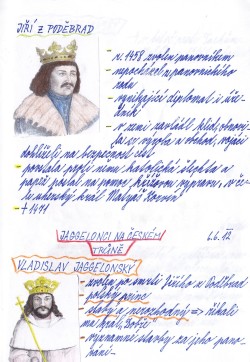 JIŘÍ Z PODĚBRAD
- r. 1458 zvolen panovníkem
- nepocházel z panovnického
rodu
- vynikající diplomat i
- v zemi nastal klid, obnovi-
la se výroba a obchod, vojáci
dohlíželi na bezpečnost cest
- povstala proti němu katolická šlechta a
papež poslal na pomoc křížovou výpravu, v če-
le uherský král Matyáš Korvín
- † 1471
JAGGELONCI NA ČESKÉM
TRŮNĚ
VLADISLAV JAGGELONSKÝ
- zvolen po smrti Jiřího z Poděbrad
- polský princ
- slabý a nerozhodný => říkali
mu král Dobře
- významné stavby za jeho pano-
vání -